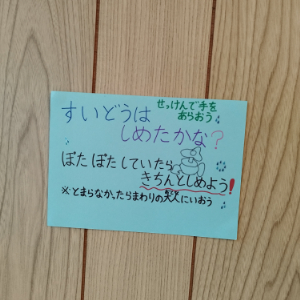 せっけんで手を
あらおう
すいどうは
しめたかな?
ぽたぽたしていたら
きちんとしめよう!
※とまらなか、たらまわりの大人にいおう